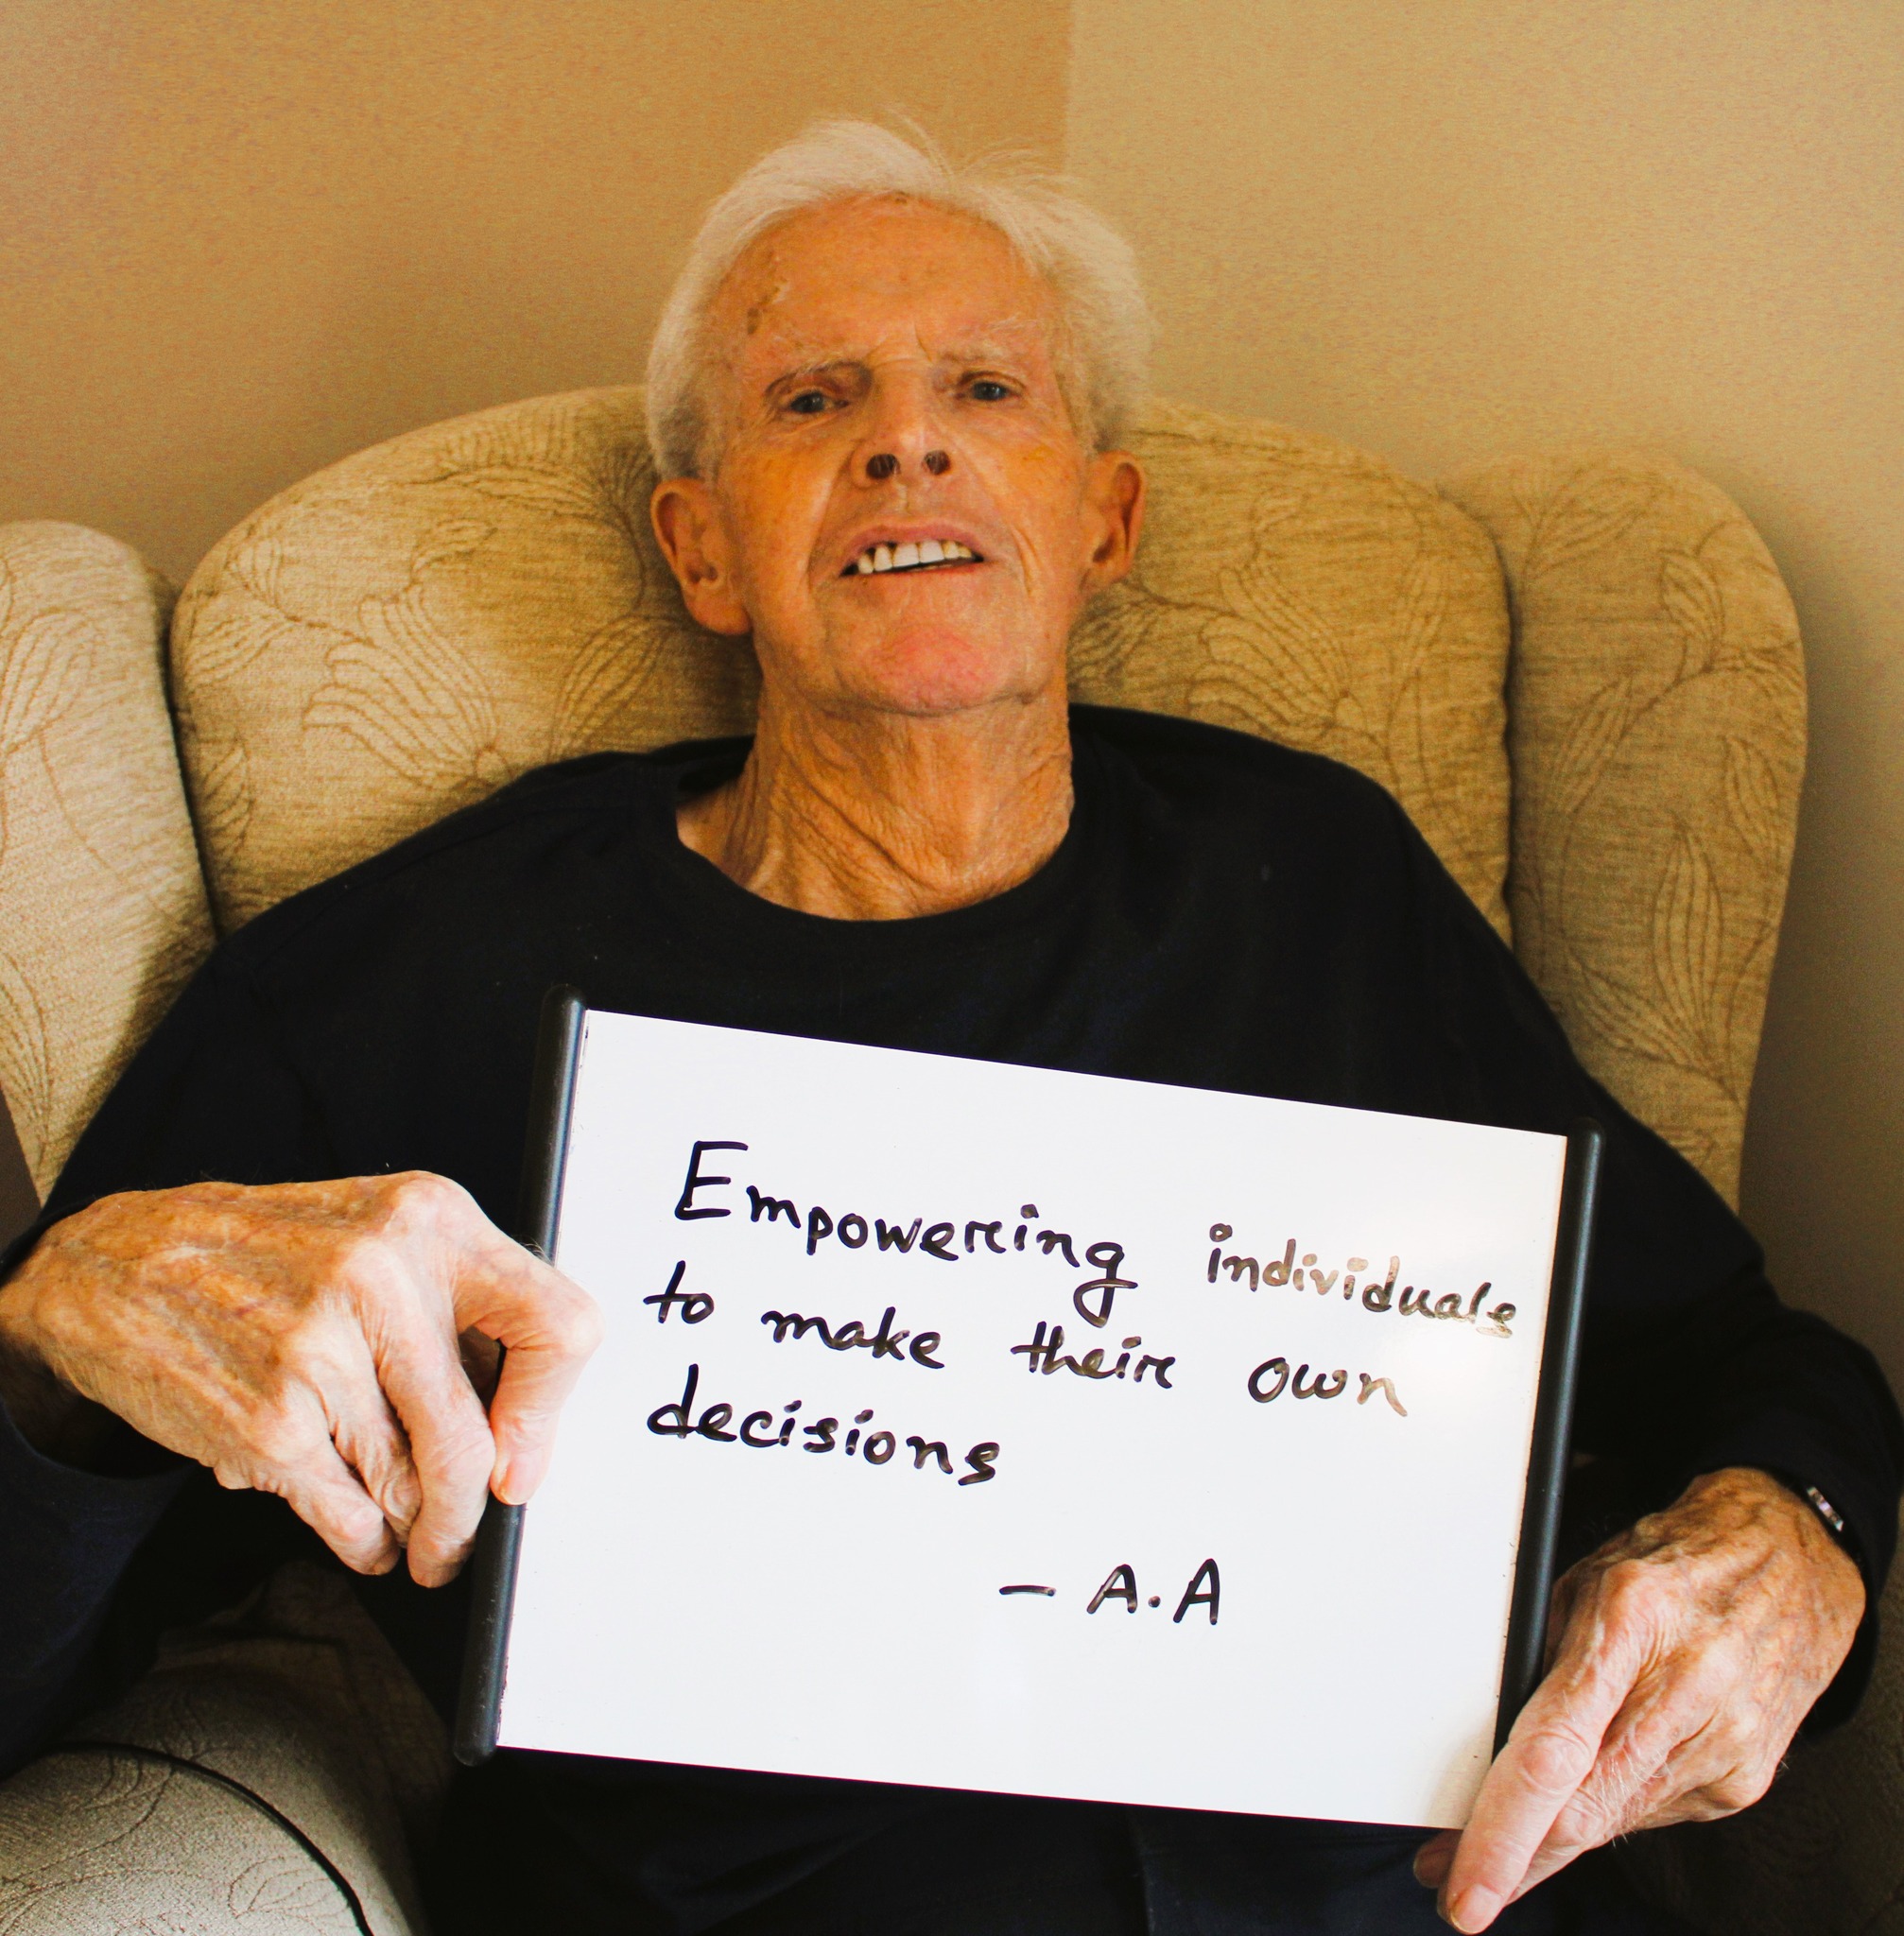 Empowering individuals
to make their own
decisions
- A.A